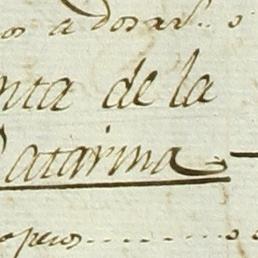 os a dorar.. o
nta de la
Catarina
opeos........o